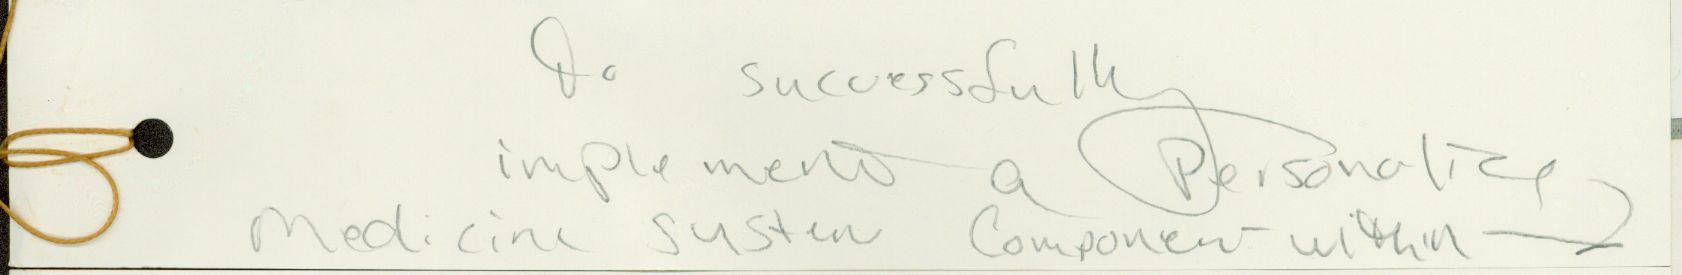 To successfully
implement a Personalize
Medicine System Component within →